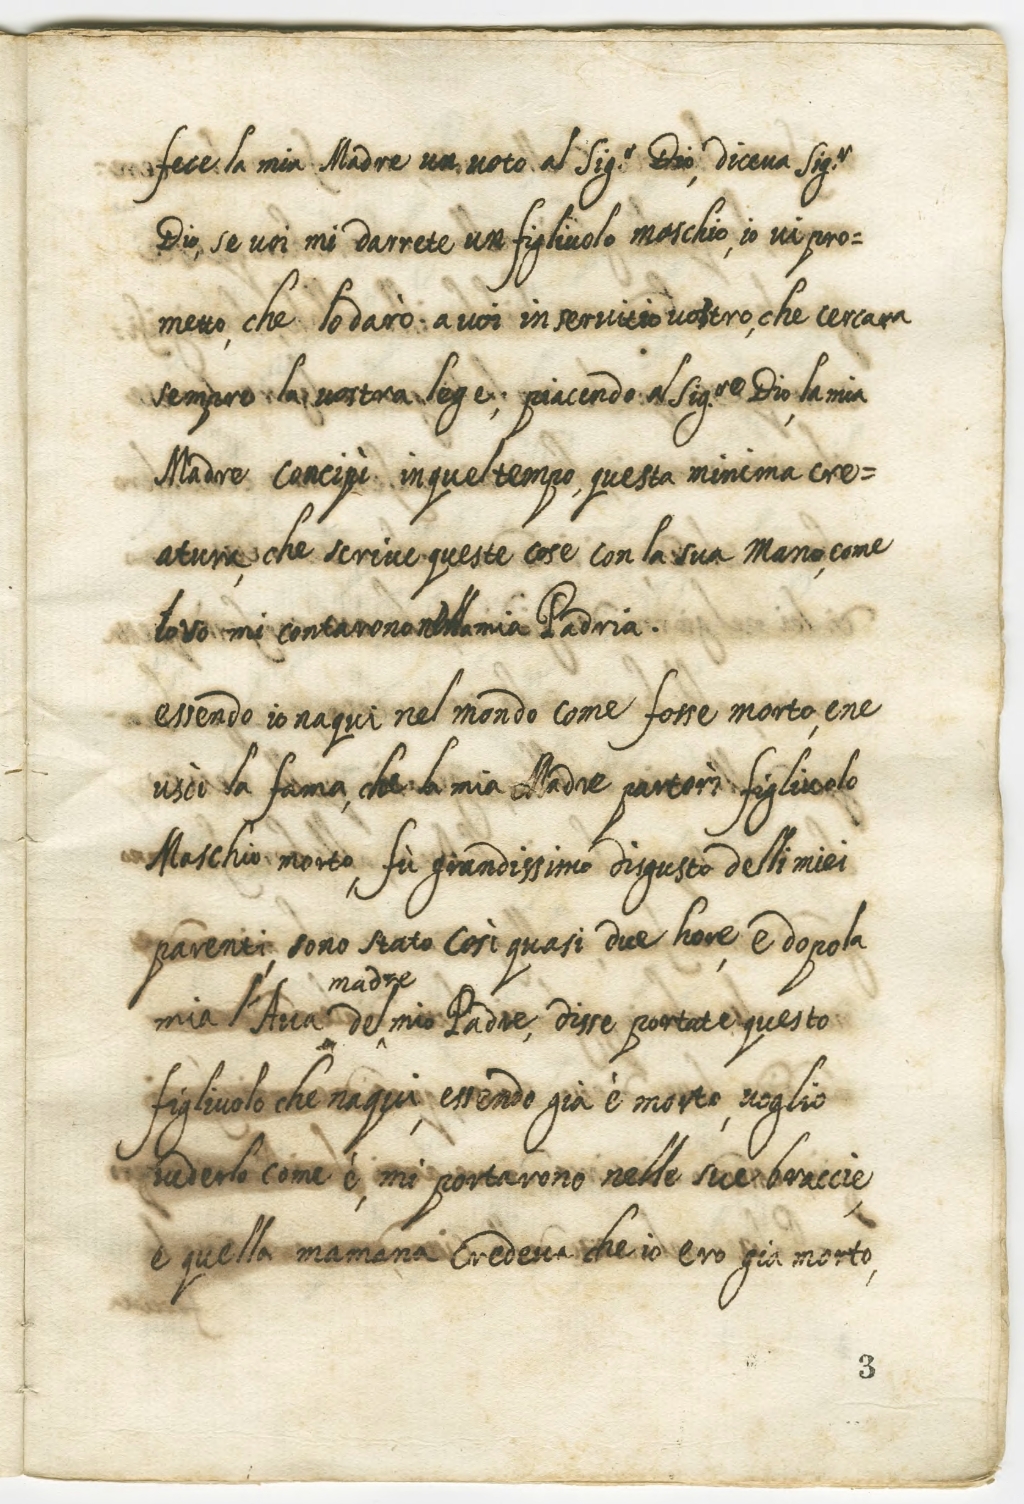 fece la mia Madre un voto al Sig.r Dio, diceva Sig.r
Dio, se voi mi darrete un figlivolo maschio, io vi pro=
metto, che lo darò a voi in servitio vostro, che cercara
sempre la vostra lege, piacendo al Sig.re Dio, la mia
Madre concipì in quel tempo, questa minima cre=
atura, che scrive queste cose con la sua mano, come
loro mi contarono nella mia Padria.
essendo io naqui nel mondo come fosse morto, e ne
uscì la fama, che la mia Madre partorì figlivolo
Maschio morto, fù grandissimo disgusto delli miei
parenti, sono stato così quasi due hore, e dopo la
madre
mia l'Ava del mio Padre, disse portate questo
figlivolo che naqui, essendo già è morto, voglio
vederlo come è, mi portarono nelle sue braccie,
e quella mamana credeva che io ero già morto,
3